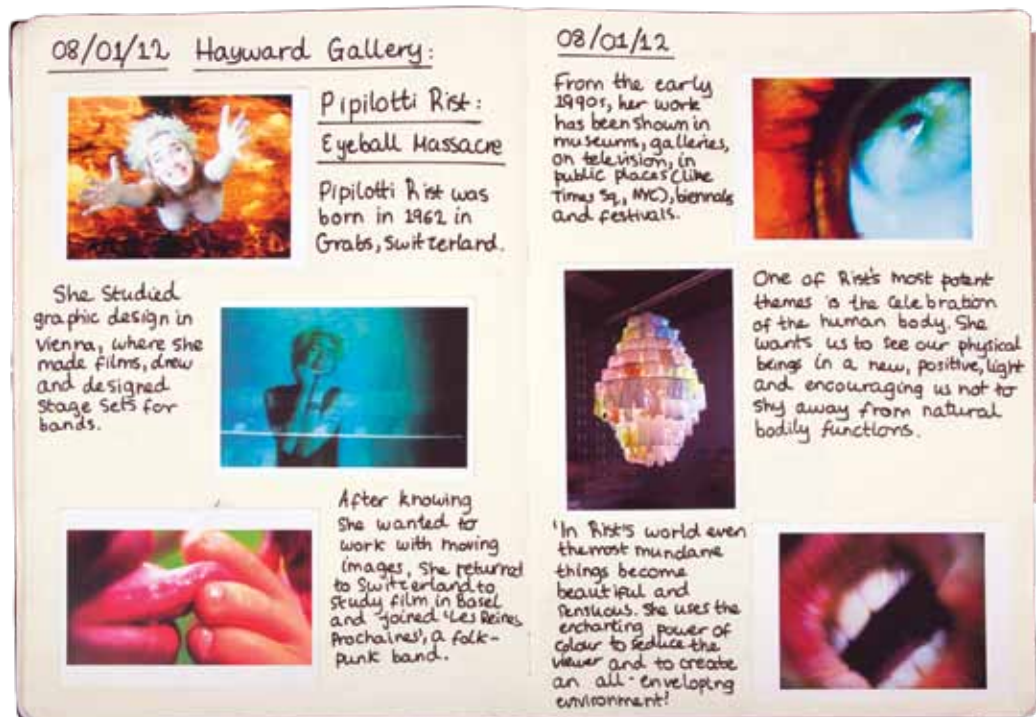 08/01/12 Hayward Gallery:
Pipilotti Rist:
Eyeball Massacre
Pipilotti Rist was
born in 1962 in
Grabs, Switzerland.
She studied
graphic design in
Vienna, where she
made films, drew
and designed
stage sets for
bands.
After knowing
she wanted to
work with moving
images, she returned
to Switzerland to
study film in Basel
and joined 'Les Reines
Prochaines', a folk-
punk band.
08/01/12
From the early
1990s, her work
has been shown in
museums, galleries,
on television, in
public places (like
Times Sq., NYC), biennals
and festivals.
One of Rist's most potent
themes is the celebration
of the human body. She
wants us to see our physical
beings in a new, positive, light
and encouraging us not to
shy away from natural
bodily functions.
'In Rist's world even
the most mundane
things become
beautiful and
sensuous. She uses the
enchanting power of
colour to seduce the
viewer and to create
an all-enveloping
environment!'